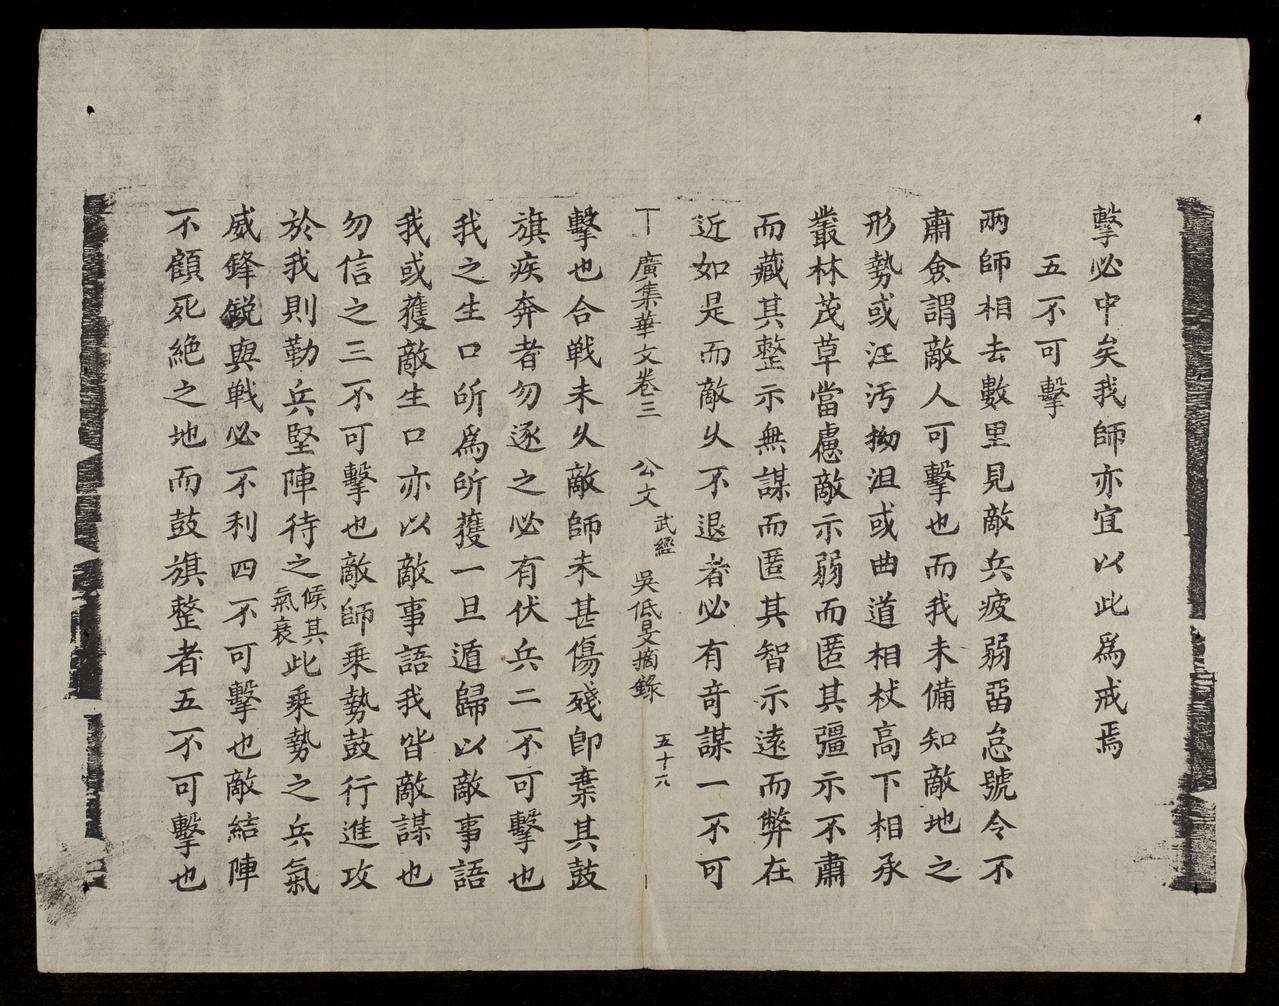 擊必中矣我師亦宜以此為戒焉
五不可擊
兩師相去數里見敵兵疲弱畱怠號令不
肅僉謂敵人可擊也而我未備知敵地之
形勢或汪汚拗沮或曲道相杖高下相承
叢林茂草當慮敵示弱而匿其彊示不肅
而藏其整示無謀而匿其智示遠而弊在
近如是而敵乆不退者必有竒謀一不可
丅廣集華文卷三 公文 武經 吳低旻摘錄 五十八
擊也合戦未乆敵師未甚傷殘卽棄其鼓
旗疾奔者勿逐之必有伏兵二不可擊也
我之生口所為所獲一旦遁歸以敵事語
我或獲敵生口亦以敵事語我皆敵謀也
勿信之三不可擊也敵師乗勢鼓行進攻
於我則勒兵堅陣待之候其氣衰此乗勢之兵氣
威鋒銳與戦必不利四不可擊也敵結陣
不顧死絶之地而鼓旗整者五不可擊也